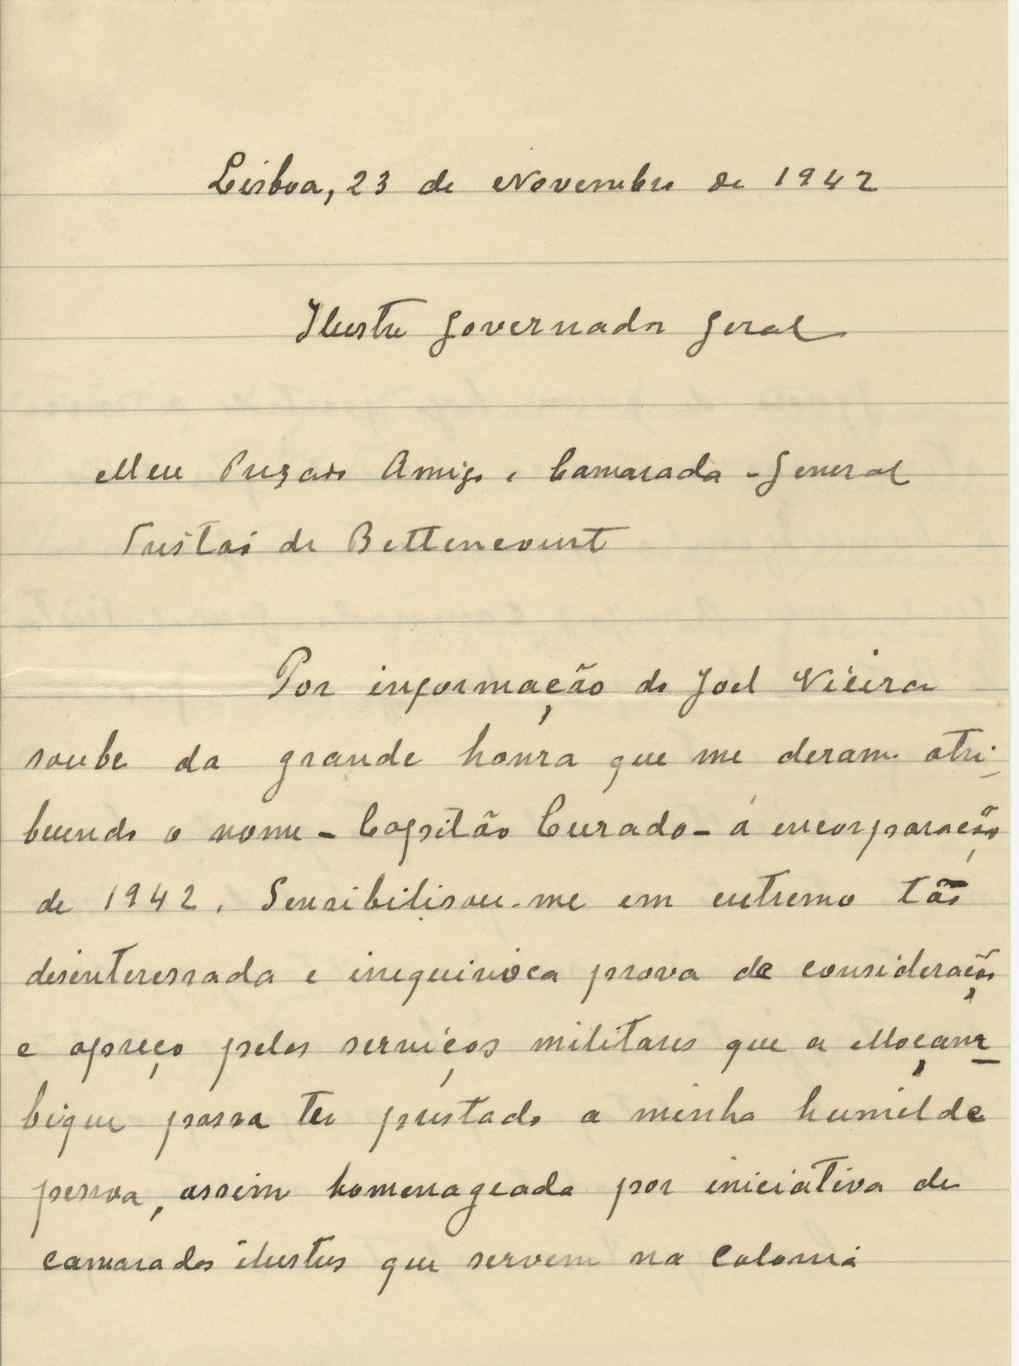 Lisboa, 23 de Novembro de 1942
Ilustre Governador Geral
Meu Prezado Amigo e Camarada - General
Tristão de Bettencourt
Por informação do Joel Vieira
soube da grande honra que me deram atri-
buindo o nome - Capitão Curado - á incorporação
de 1942. Sensibilisou-me em extremo tão
desinteressada e inequivoca prova de consideração
e apreço pelos serviços militares que a Moçam-
bique possa ter prestado a minha humilde
pessoa, assim homenageada por iniciativa de
camaradas ilustres que servem na Colonia